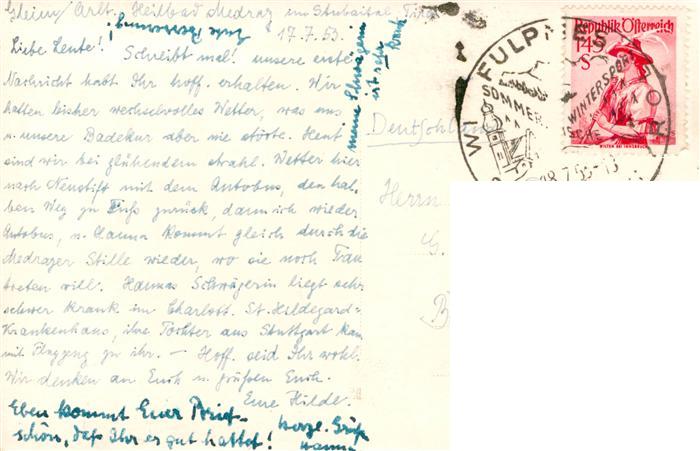 Gleinz/Arlt. Heilbad Medraz im Stubaital. Tirol
17.7.53.
Gute Besserung!
Liebe Leute! Schreibt mal! unsere erste
Nachricht habt Ihr hoff. erhalten. Wir
hatten bisher wechselvolles Wetter, was uns
u. unsere Badekur aber nie störte. Heut
sind wir bei glühendem strahl. Wetter hier
nach Neustift mit dem Autobus, den hal-
ben Weg zu Fuß zurück, dann ich wieder
Autobus, u. Hanna kommt gleich durch die
Medrazer Stille wieder, wo sie noch
treten will. Hannas Schwägerin liegt sehr
schwer krank im Charlott. St. Hildegard-
Krankenhaus, ihre Töchter aus Stuttgart kam
mit Flugzeug zu ihr. — Hoff. seid Ihr wohl.
Wir denken an Euch u. grüßen Euch.
Eure Hilde.
Eben kommt Euer Brief-
schön, daß Ihr es gut hattet!
herzl. Grüße
Hanna
meine Schwägerin
ist sehr krank
Deutschland
Herrn
G.
B
FULPMES
SOMMER
WINTERSPORT
18.7.53-13
Republik Österreich
1.45
S
WILTEN BEI INNSBRUCK